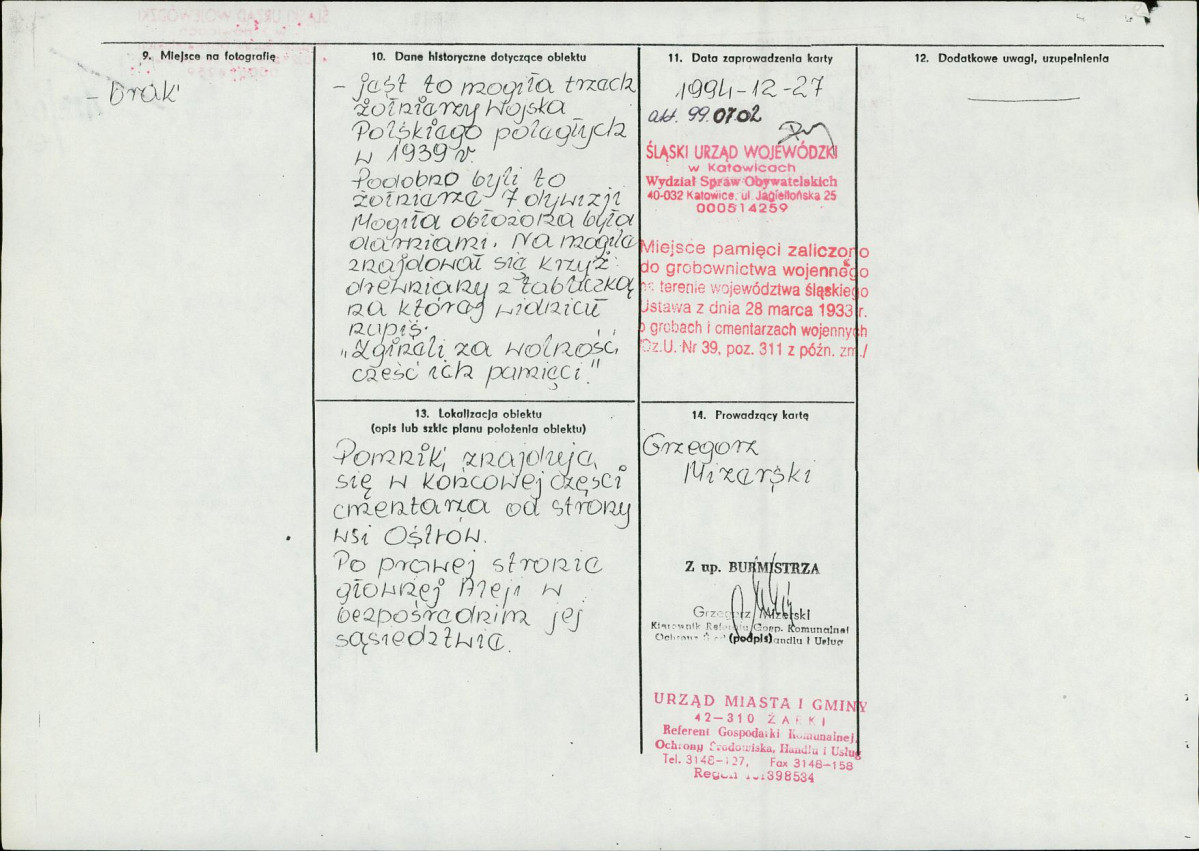 9. Miejsce na fotografię
brak
10. Dane historyczne dotyczące obiektu
- jest to mogiła trzech
żołnierzy Wojska
Polskiego poległych
w 1939 r.
Podobno byli to
żołnierze 7 dywizji
Mogiła obłożona była
darniami. Na mogile
znajdował się krzyż
drewniany z tabliczką
na której widniał
napis.
"Zginęli za wolność,
cześć ich pamięci."
11. Data zaprowadzenia karty
1994-12-27
akt. 99.07.02
ŚLĄSKI URZĄD WOJEWÓDZKI
w Katowicach
Wydział Spraw Obywatelskich
40-032 Katowice, ul. Jagiellońska 25
000514259
Miejsce pamięci zaliczono
do grobownictwa wojennego
na terenie województwa śląskiego
Ustawa z dnia 28 marca 1933 r.
o grobach i cmentarzach wojennych
Dz.U. Nr 39, poz. 311 z późn. zm./
12. Dodatkowe uwagi, uzupełnienia
13. Lokalizacja obiektu
(opis lub szkic planu położenia obiektu)
Pomnik znajduje
się w końcowej części
cmentarza od strony
wsi Ostrów.
Po prawej stronie
głównej Aleji w
bezpośrednim jej
sąsiedztwie.
14. Prowadzący kartę
Grzegorz
Mizerski
Z up. BURMISTRZA
Grzegorz Mizerski
Kierownik Referatu Gosp. Komunalnej
(podpis) Handlu i Usług
URZĄD MIASTA I GMINY
42-310 ŻARKI
Referent Gospodarki Komunalnej,
Ochrony Środowiska, Handlu i Usług
Tel. 3148-127, Fax 3148-158
Regon 398534